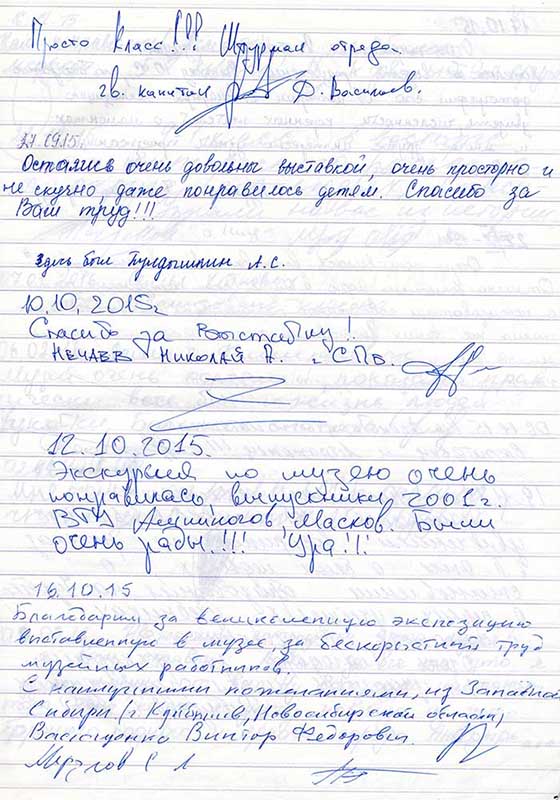 Просто класс!!! Штурман отряда
гв. капитан Д. Васильев.
27.09.15г.
Остались очень довольны выставкой, очень просторно и
не скучно, даже понравилось детям. Спасибо за
Ваш труд!!!
Здесь был Пулдышкин А.С.
10.10.2015г
Спасибо за выставку!
НЕЧАЕВ НИКОЛАЙ А. г. СПб.
12.10.2015.
Экскурсия по музею очень
понравилась, выпускники 2001г.
Масков. Были
очень рады!!! Ура!!!
16.10.15
Благодарим за великолепную экспозицию
выставленную в музее, за бескорыстный труд
музейных работников.
С наилучшими пожеланиями, из Западной
Сибири (г. Куйбышев, Новосибирской области)
Виктор Федорович.